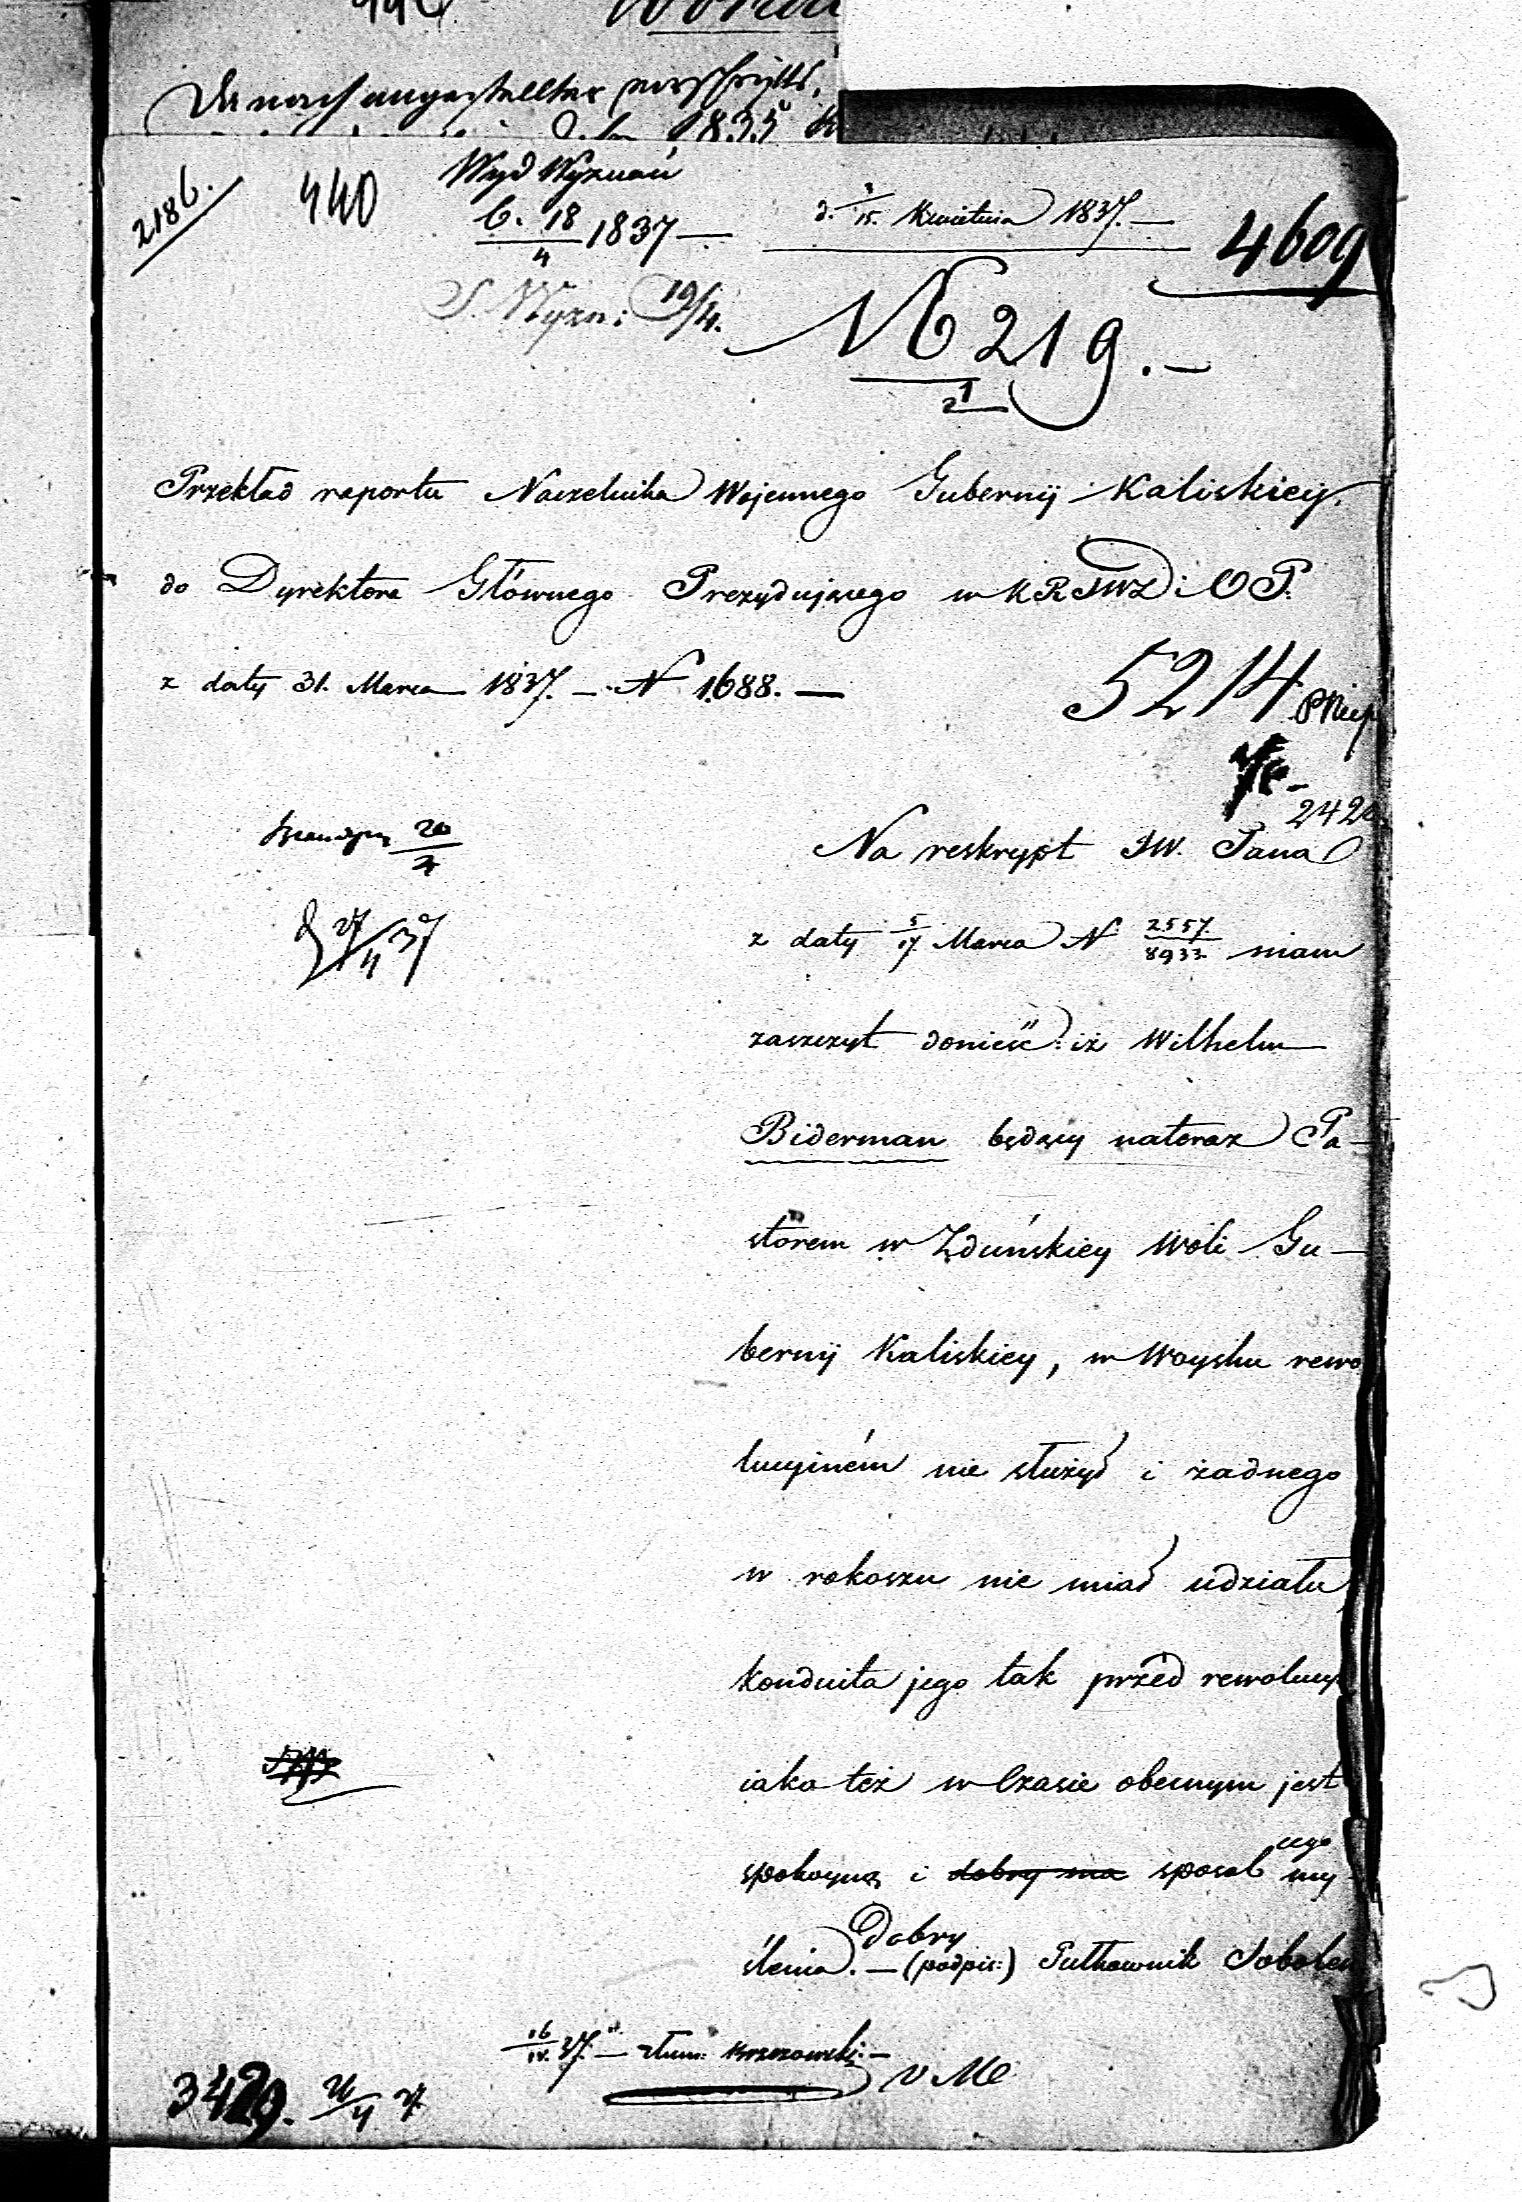 2186.
440
Wyd Wyznań
6. 18/4 1837 —
d. 3/15. Kwietnia 1837. —
4609
S. Wyzn: 19/4.
№ 219. —
1
2
Przekład raportu Naczelnika Wojennego Gubernij Kaliskiéy.
do Dyrektora Głównego Prezydującego w KRSWD i OP.
z daty 31. Marca 1837. — N 1688. —
5214
242
20/4
Na reskrypt JW. Pana
27/4 37
z daty 5/17 Marca N 2557/8933 mam
zaszczyt donieść: iż Wilhelm
Biderman będący nateraz Pa-
storem w Zduńskiey Woli Gu-
bernij Kaliskiey, w Woysku rewo
lucyiném nie służył i żadnego
w rokoszu nie miał udziału
konduita jego tak przed rewolucyą
iako też w Czasie obecnym jest
spokoyną i dobry ma sposób jego my-
ślenia. Dobry — (podpis:) Pułkownik Sobolew
16/IV. 37. — tłum: Brzozowski —
3429. 21/4 37